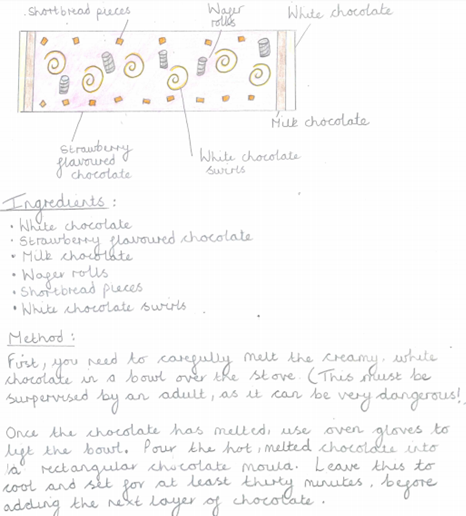 Shortbread pieces
Wager
rolls
White chocolate
Milk chocolate
Strawberry
flavoured
chocolate
White chocolate
swirls
Ingredients :
• White chocolate
• Strawberry flavoured chocolate
• Milk chocolate
• Wager rolls
• Shortbread pieces
• White chocolate swirls
Method :
First, you need to carefully melt the creamy, white
chocolate in a bowl over the stove. (This must be
surpervised by an adult, as it can be very dangerous!
Once the chocolate has melted, use oven gloves to
lift the bowl. Pour the hot, melted chocolate into
a rectangular chocolate mould. Leave this to
cool and set for at least thirty minutes, before
adding the next layer of chocolate.